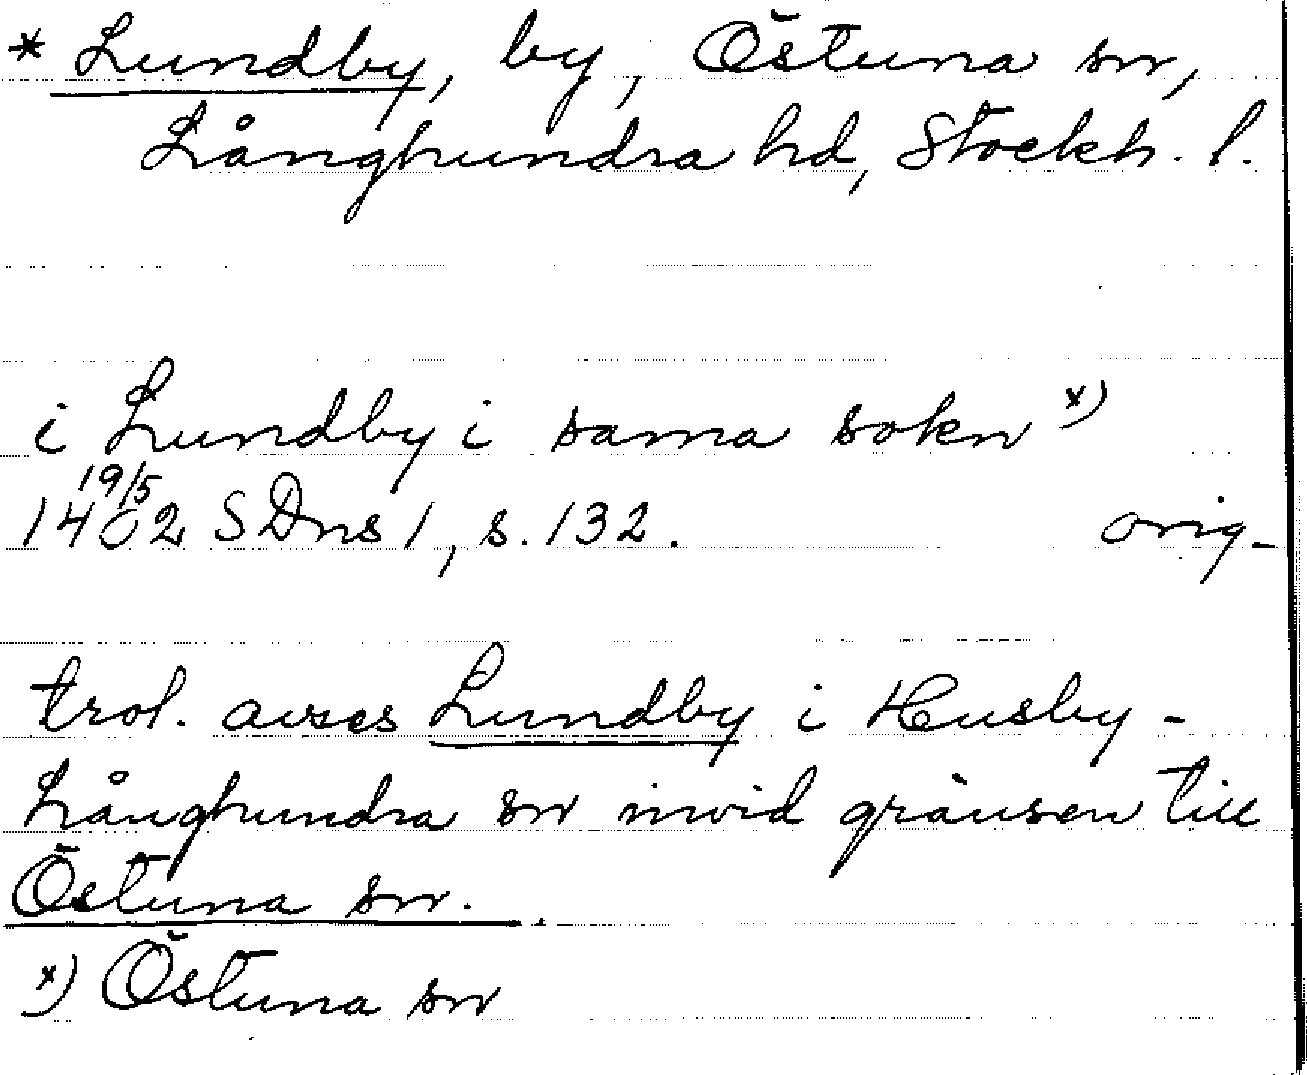 * Lundby, by, Östuna sn,
Långhundra hd, Stockh. l.
i Lundby i sama sokn x)
19/5
1402 SDns 1, s. 132. orig-
trol. avses Lundby i Husby-
Långhundra sn invid gränsen till
Östuna sn.
x) Östuna sn